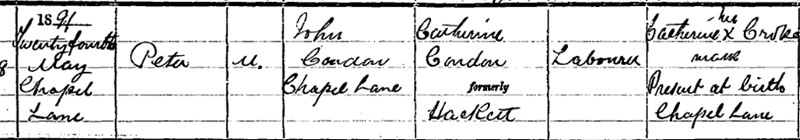 1891
Twenty fourth
May
Chapel
Lane
8
Peter
M.
John
Condon
Chapel Lane
Catherine
Condon
formerly
Hackett
Labourer
her
Catherine X Croke
mark
Present at birth
Chapel Lane